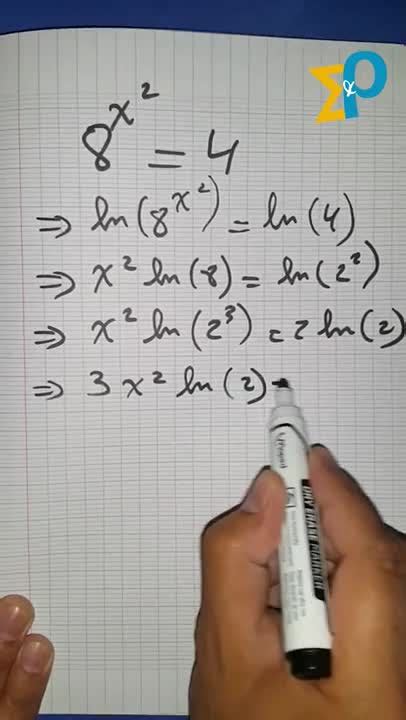 8^{x^2} = 4
⇒ ln(8^{x^2}) = ln(4)
⇒ x² ln(8) = ln(2²)
⇒ x² ln(2³) = 2 ln(2)
⇒ 3 x² ln(2)
DRY ERASE MARKER